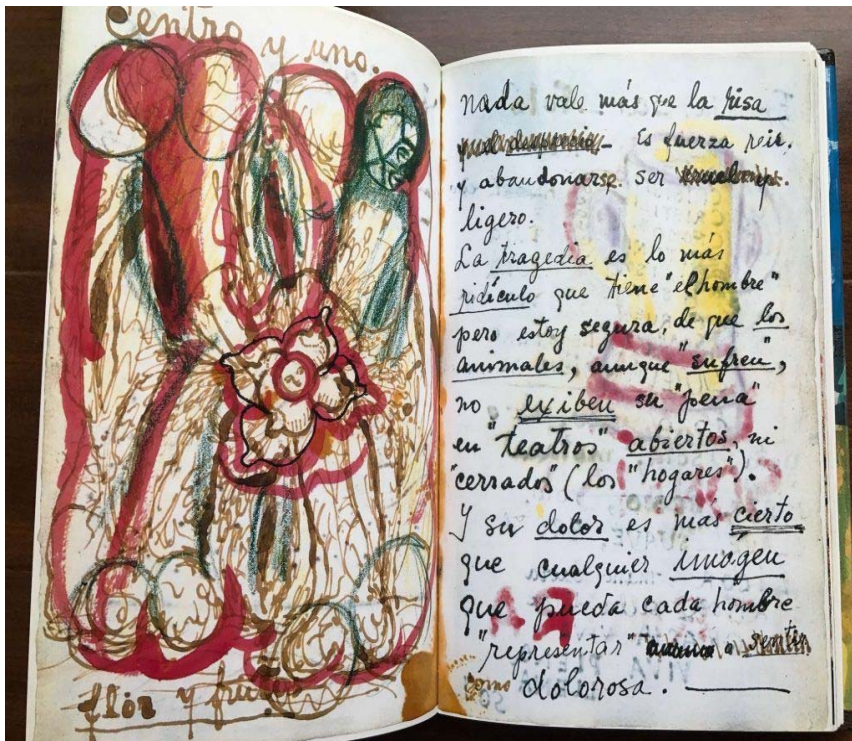 Centro y uno.
flor y frutos
nada vale más que la risa
Es fuerza reir.
y abandonarse. ser
ligero.
La tragedia es lo más
ridículo que tiene "el hombre"
pero estoy segura, de que los
animales, aunque "sufren",
no exiben su "pena"
en "teatros" abiertos, ni
"cerrados" (los "hogares").
Y su dolor es mas cierto
que cualquier imagen
que pueda cada hombre
"representar" sentir
como dolorosa.